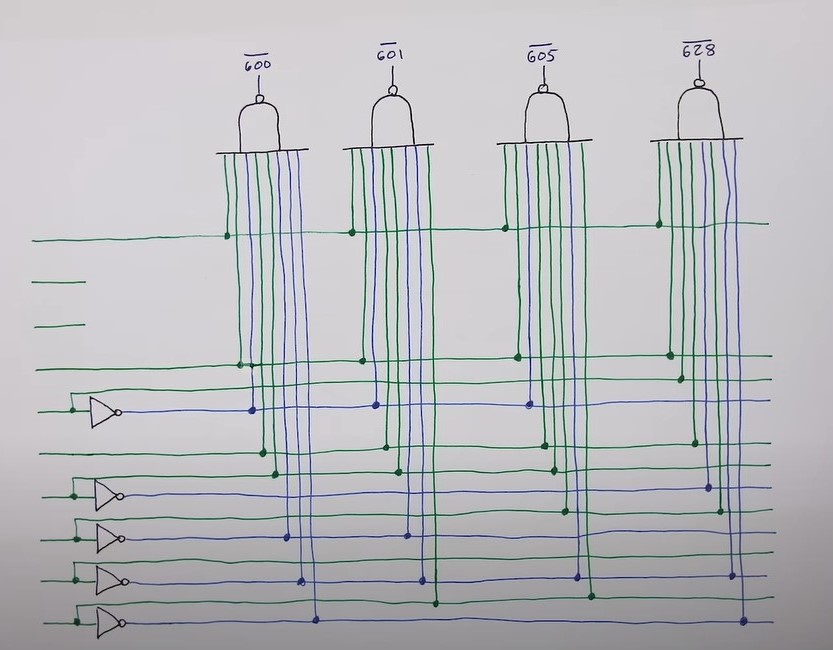 6̅0̅0̅
6̅0̅1̅
6̅0̅5̅
6̅2̅8̅